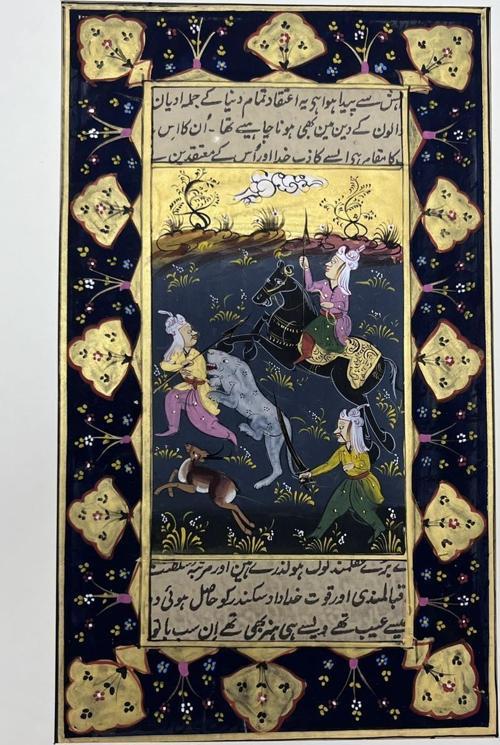 ہش سے پیدا ہوا ہی یہ اعتقاد تمام دنیا کے جملہ ادیان
والون کے دین مین بھی ہونا چاہیے تھا۔ اُن کا اس
کا مقام ہی ایسے کاذب خدا اور اُس کے معتقدین سے
عقلمند لوگ ہو گذرے ہین اور مرتبہ سلطنت
اقبالمندی اور قوت خداداد سکندر کو حاصل ہوئی و
جیسے عیب تھے ویسے ہی ہنر بھی تھے اِن سب باتو